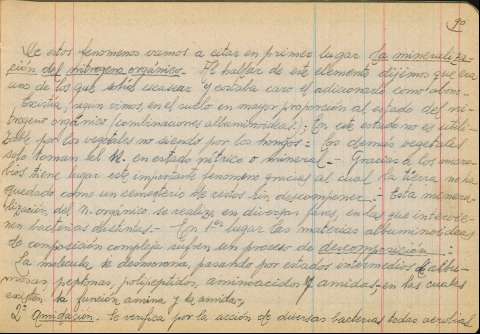 90
De estos fenomenos vamos a citar en primer lugar la mineraliza-
ción del nitrogeno orgánico.- Al hablar de este elemento dijimos que era
uno de los que solia escasear y costaba caro el adicionarle como abono.-
Existia, segun vimos, en el suelo en mayor proporción al estado de ni-
trogeno orgánico (combinaciones albuminoideas); En este estado no es utili-
zable por los vegetales no siendo por los hongos: los demás vegetales
solo toman el N. en estado nítrico o mineral.- Gracias a los micro-
bios tiene lugar este importante fenomeno gracias al cual la tierra no ha
quedado como un cementerio de restos sin descomponer.- Esta minera-
lización del N. orgánico se realiza en diversas fases, en las que intervie-
nen bacterias distintas.- En 1er lugar las materias albuminoideas
de composición compleja sufren un proceso de descomposición.:
La molecula se desmorona, pasando por estados intermedios de albu-
mosas peptonas, polipeptidos, aminoacidos y amidas, en las cuales
existen la función amina y la amida,
2º Amidacion. Se verifica por la acción de diversas bacterias todas aerobias